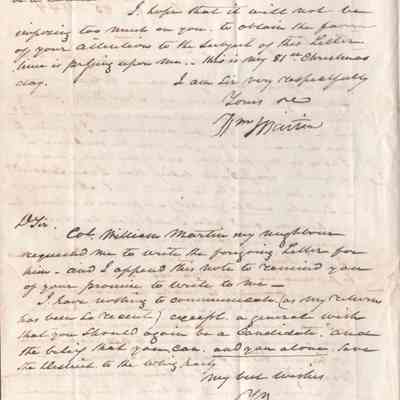 I hope that it will not be
imposing too much on you, to obtain the favor
of your attention to the subject of this Letter
time is pressing upon me.. this is my 81st Christmas
day.
I am Sir very respectfully
Yours &c
Wm Martin
D Sir.
Col. William Martin my neighbour
requested me to write the forgoing Letter for
him - and I append this note to remind you
of your promise to write to me -
I have nothing to communicate (as my return
has been so recent) except a general wish
that you should again be a Candidate, and
the belief that you can, and you alone, save
the District to the Whig party
my best wishes